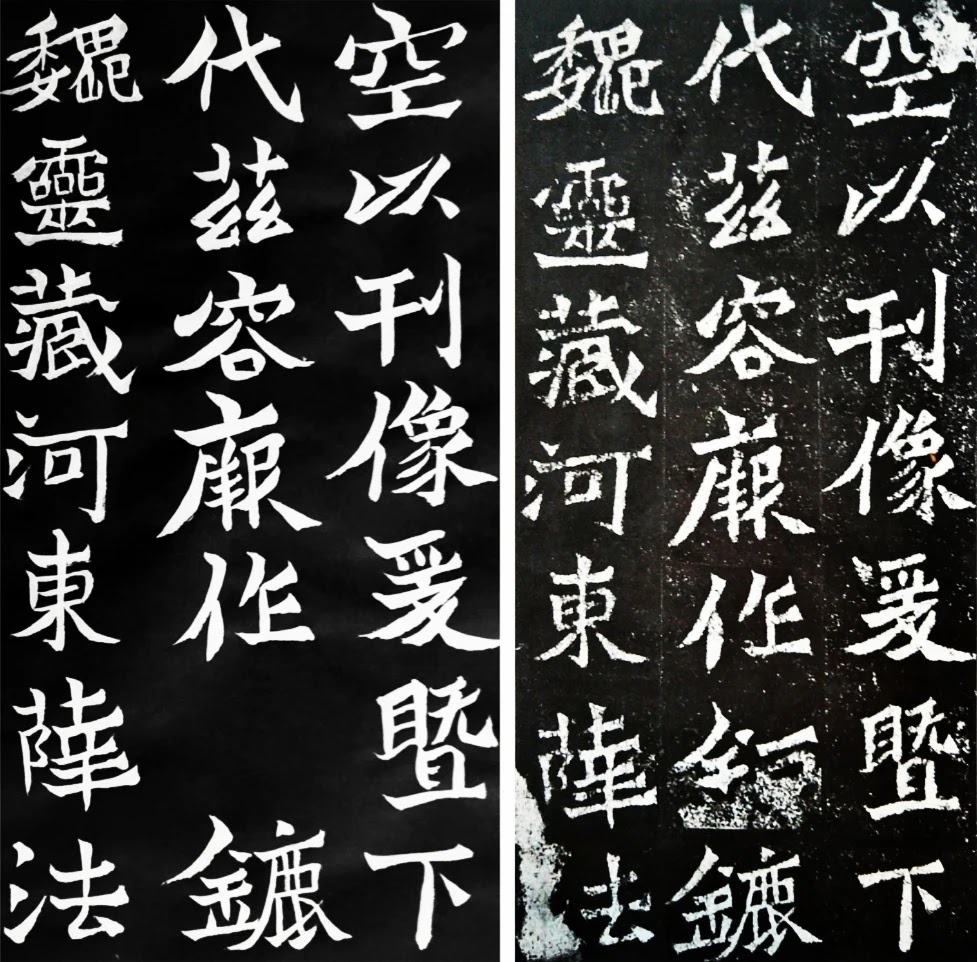 空以刊像爰暨下
代茲容厥作鏕
魏靈藏河東薛法
空以刊像爰暨下
代茲容厥作鏕
魏靈藏河東薛法